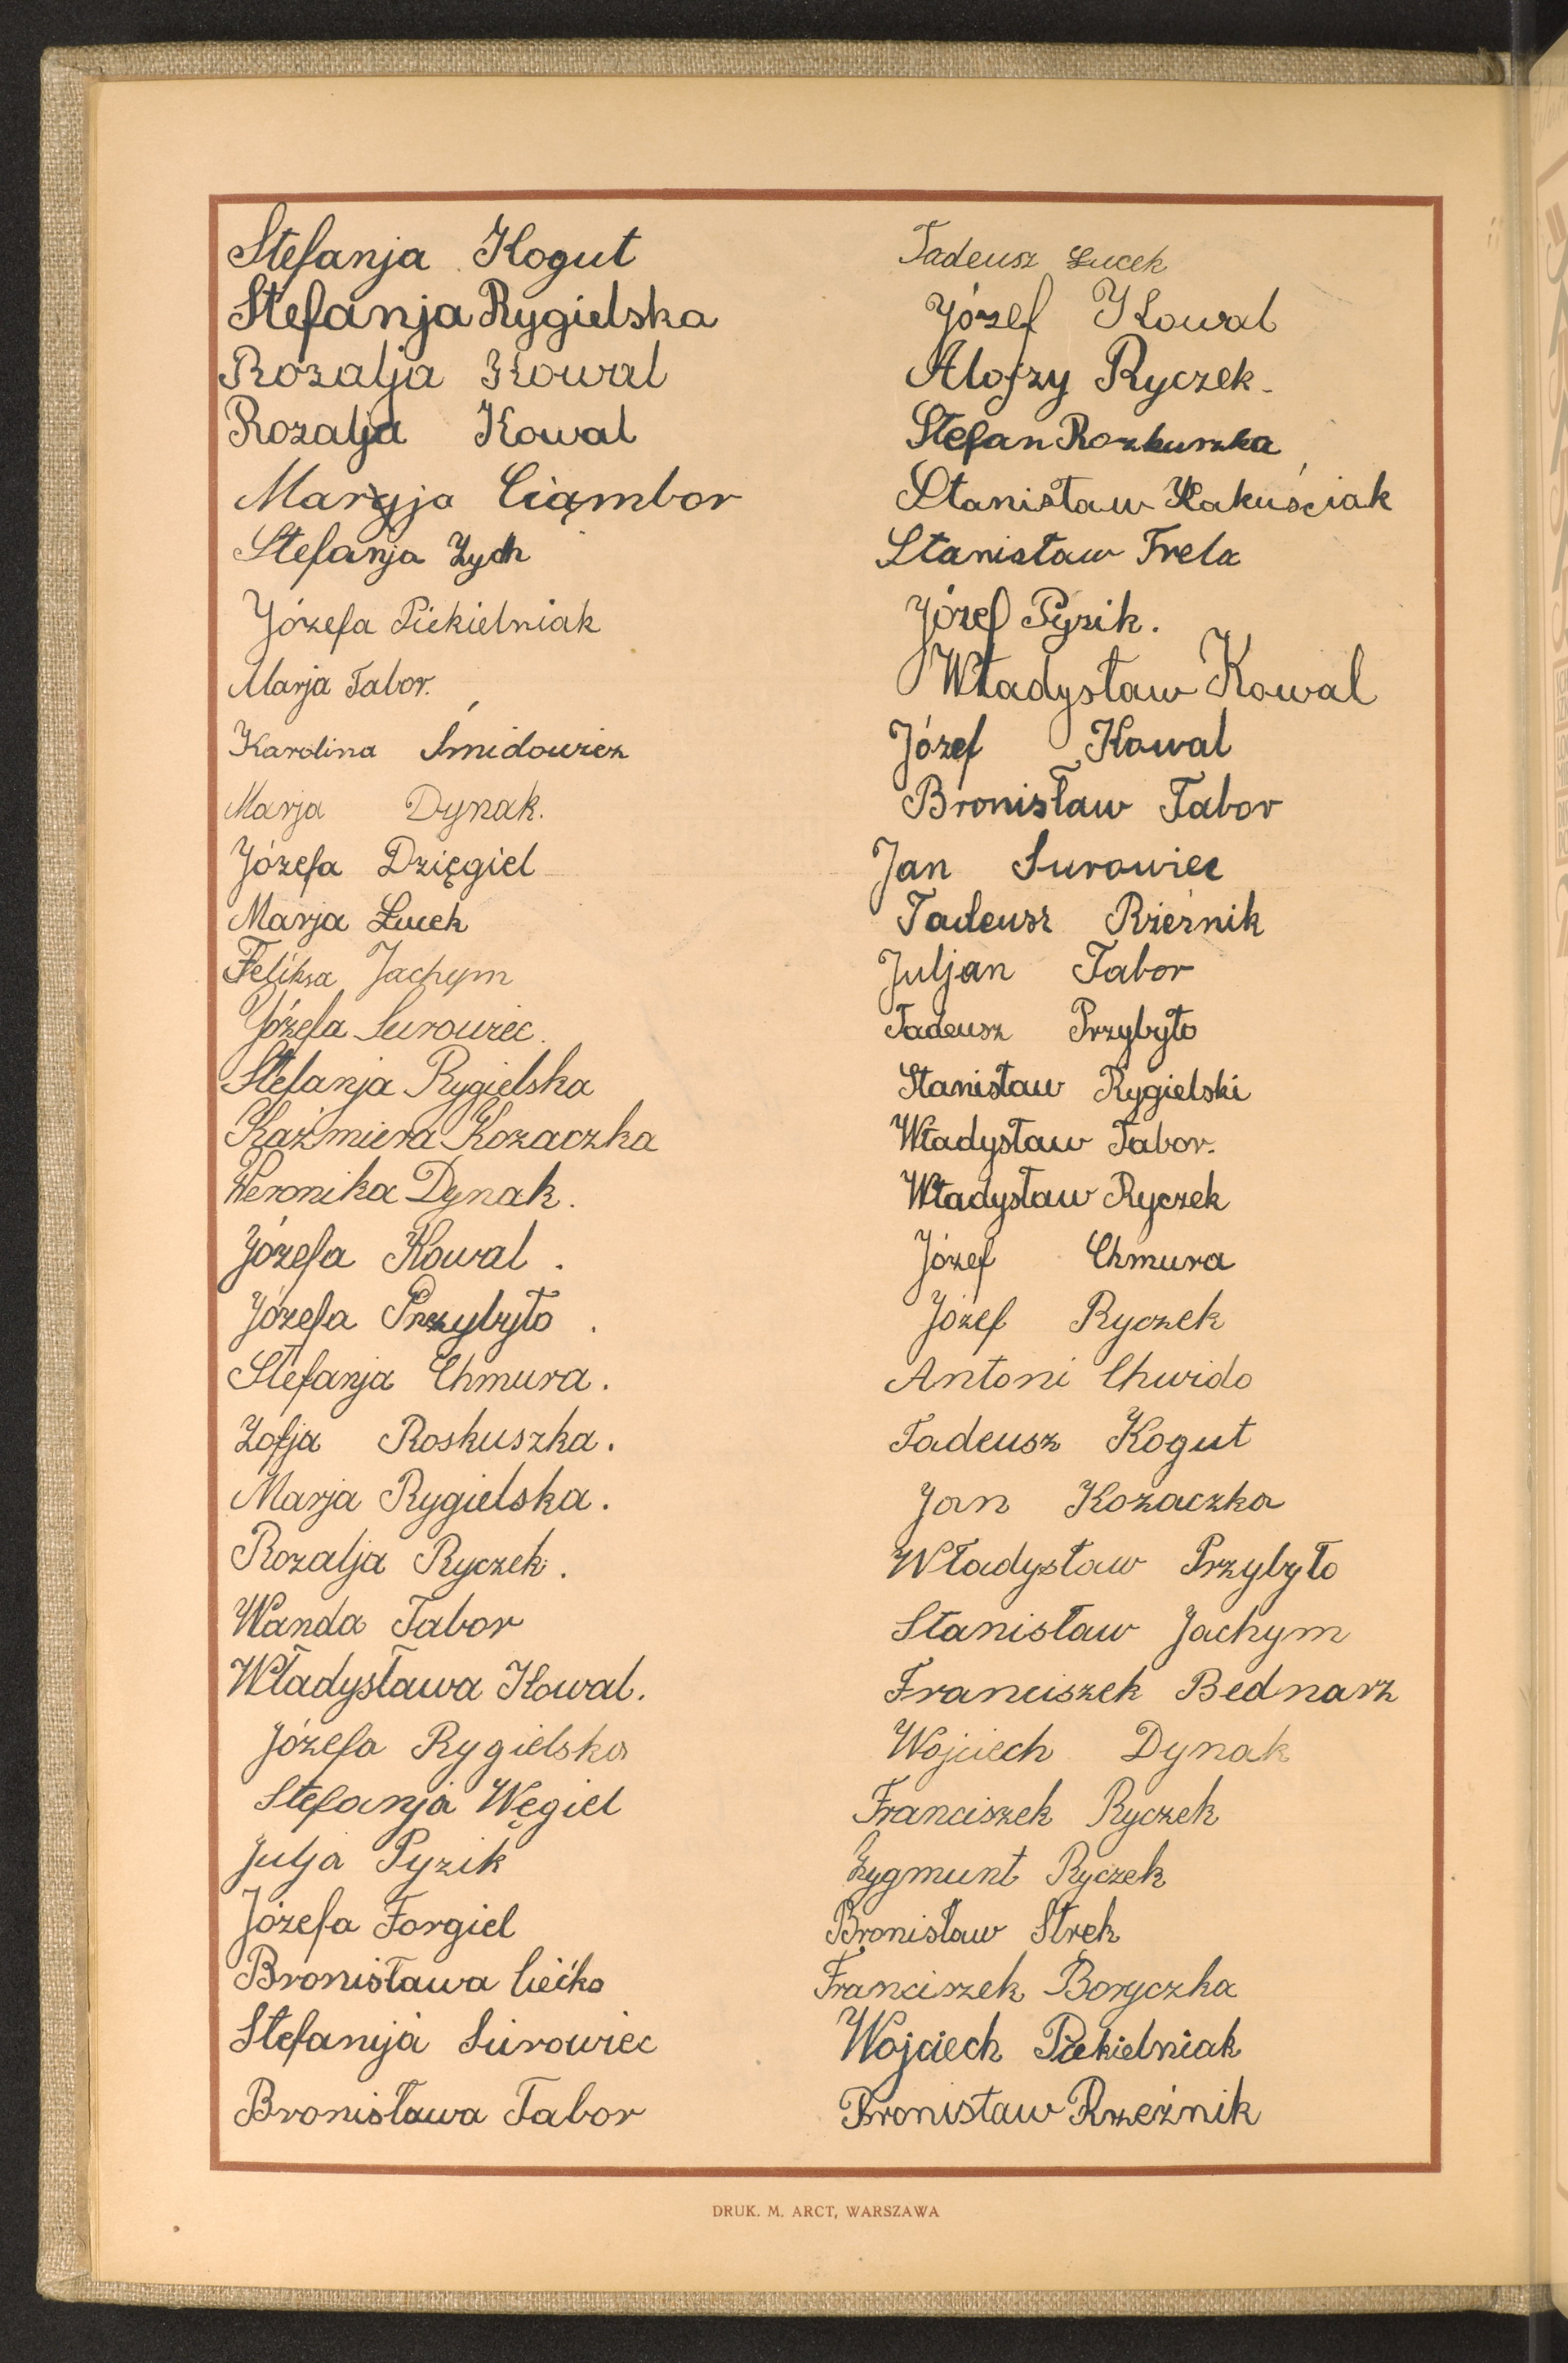 Stefanja Kogut
Stefanja Rygielska
Rozalja Kowal
Rozalja Kowal
Maryja Ciąmbor
Stefanja Zych
Józefa Piekielniak
Marja Tabor.
Karolina Śmidowicz
Marja Dynak.
Józefa Dzięgiel
Marja Łucek
Feliksa Jachym
Józefa Surowiec.
Stefanja Rygielska
Kaźmiera Kozaczka
Weronika Dynak.
Józefa Kowal.
Józefa Przybyło.
Stefanja Chmura.
Zofja Roskuszka.
Marja Rygielska.
Rozalja Ryczek.
Wanda Tabor
Władysława Kowal.
Józefa Rygielska
Stefanja Węgiel
Julja Pyzik
Józefa Forgiel
Bronisława Ciećko
Stefanija Surowiec
Bronisława Tabor
Tadeusz Łucek
Józef Kowal
Alojzy Ryczek.
Stefan Rozkuszka
Stanisław Kakuściak
Stanisław Frela
Józef Pyzik.
Władysław Kowal
Józef Kowal
Bronisław Tabor
Jan Surowiec
Tadeusz Rzeźnik
Juljan Tabor
Tadeusz Przybyło
Stanisław Rygielski
Władysław Tabor.
Władysław Ryczek
Józef Chmura
Józef Ryczek
Antoni Chwido
Tadeusz Kogut
Jan Kozaczka
Władysław Przybyło
Stanisław Jachym
Franciszek Bednarz
Wojciech Dynak
Franciszek Ryczek
Zygmunt Ryczek
Bronisław Stręk
Franciszek Boryczka
Wojciech Piekielniak
Bronisław Rzeźnik
DRUK. M. ARCT, WARSZAWA